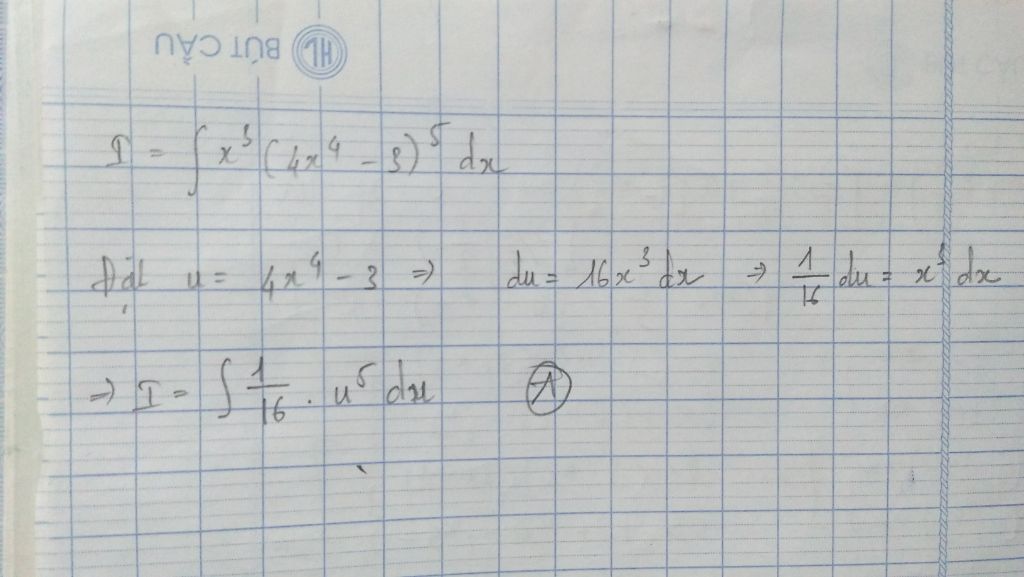 BÚT CẦU HL
I = ∫ x³ (4x⁴ - 3)⁵ dx
Đặt u = 4x⁴ - 3 => du = 16x³ dx => 1/16 du = x³ dx
=> I = ∫ 1/16 . u⁵ du Ⓐ